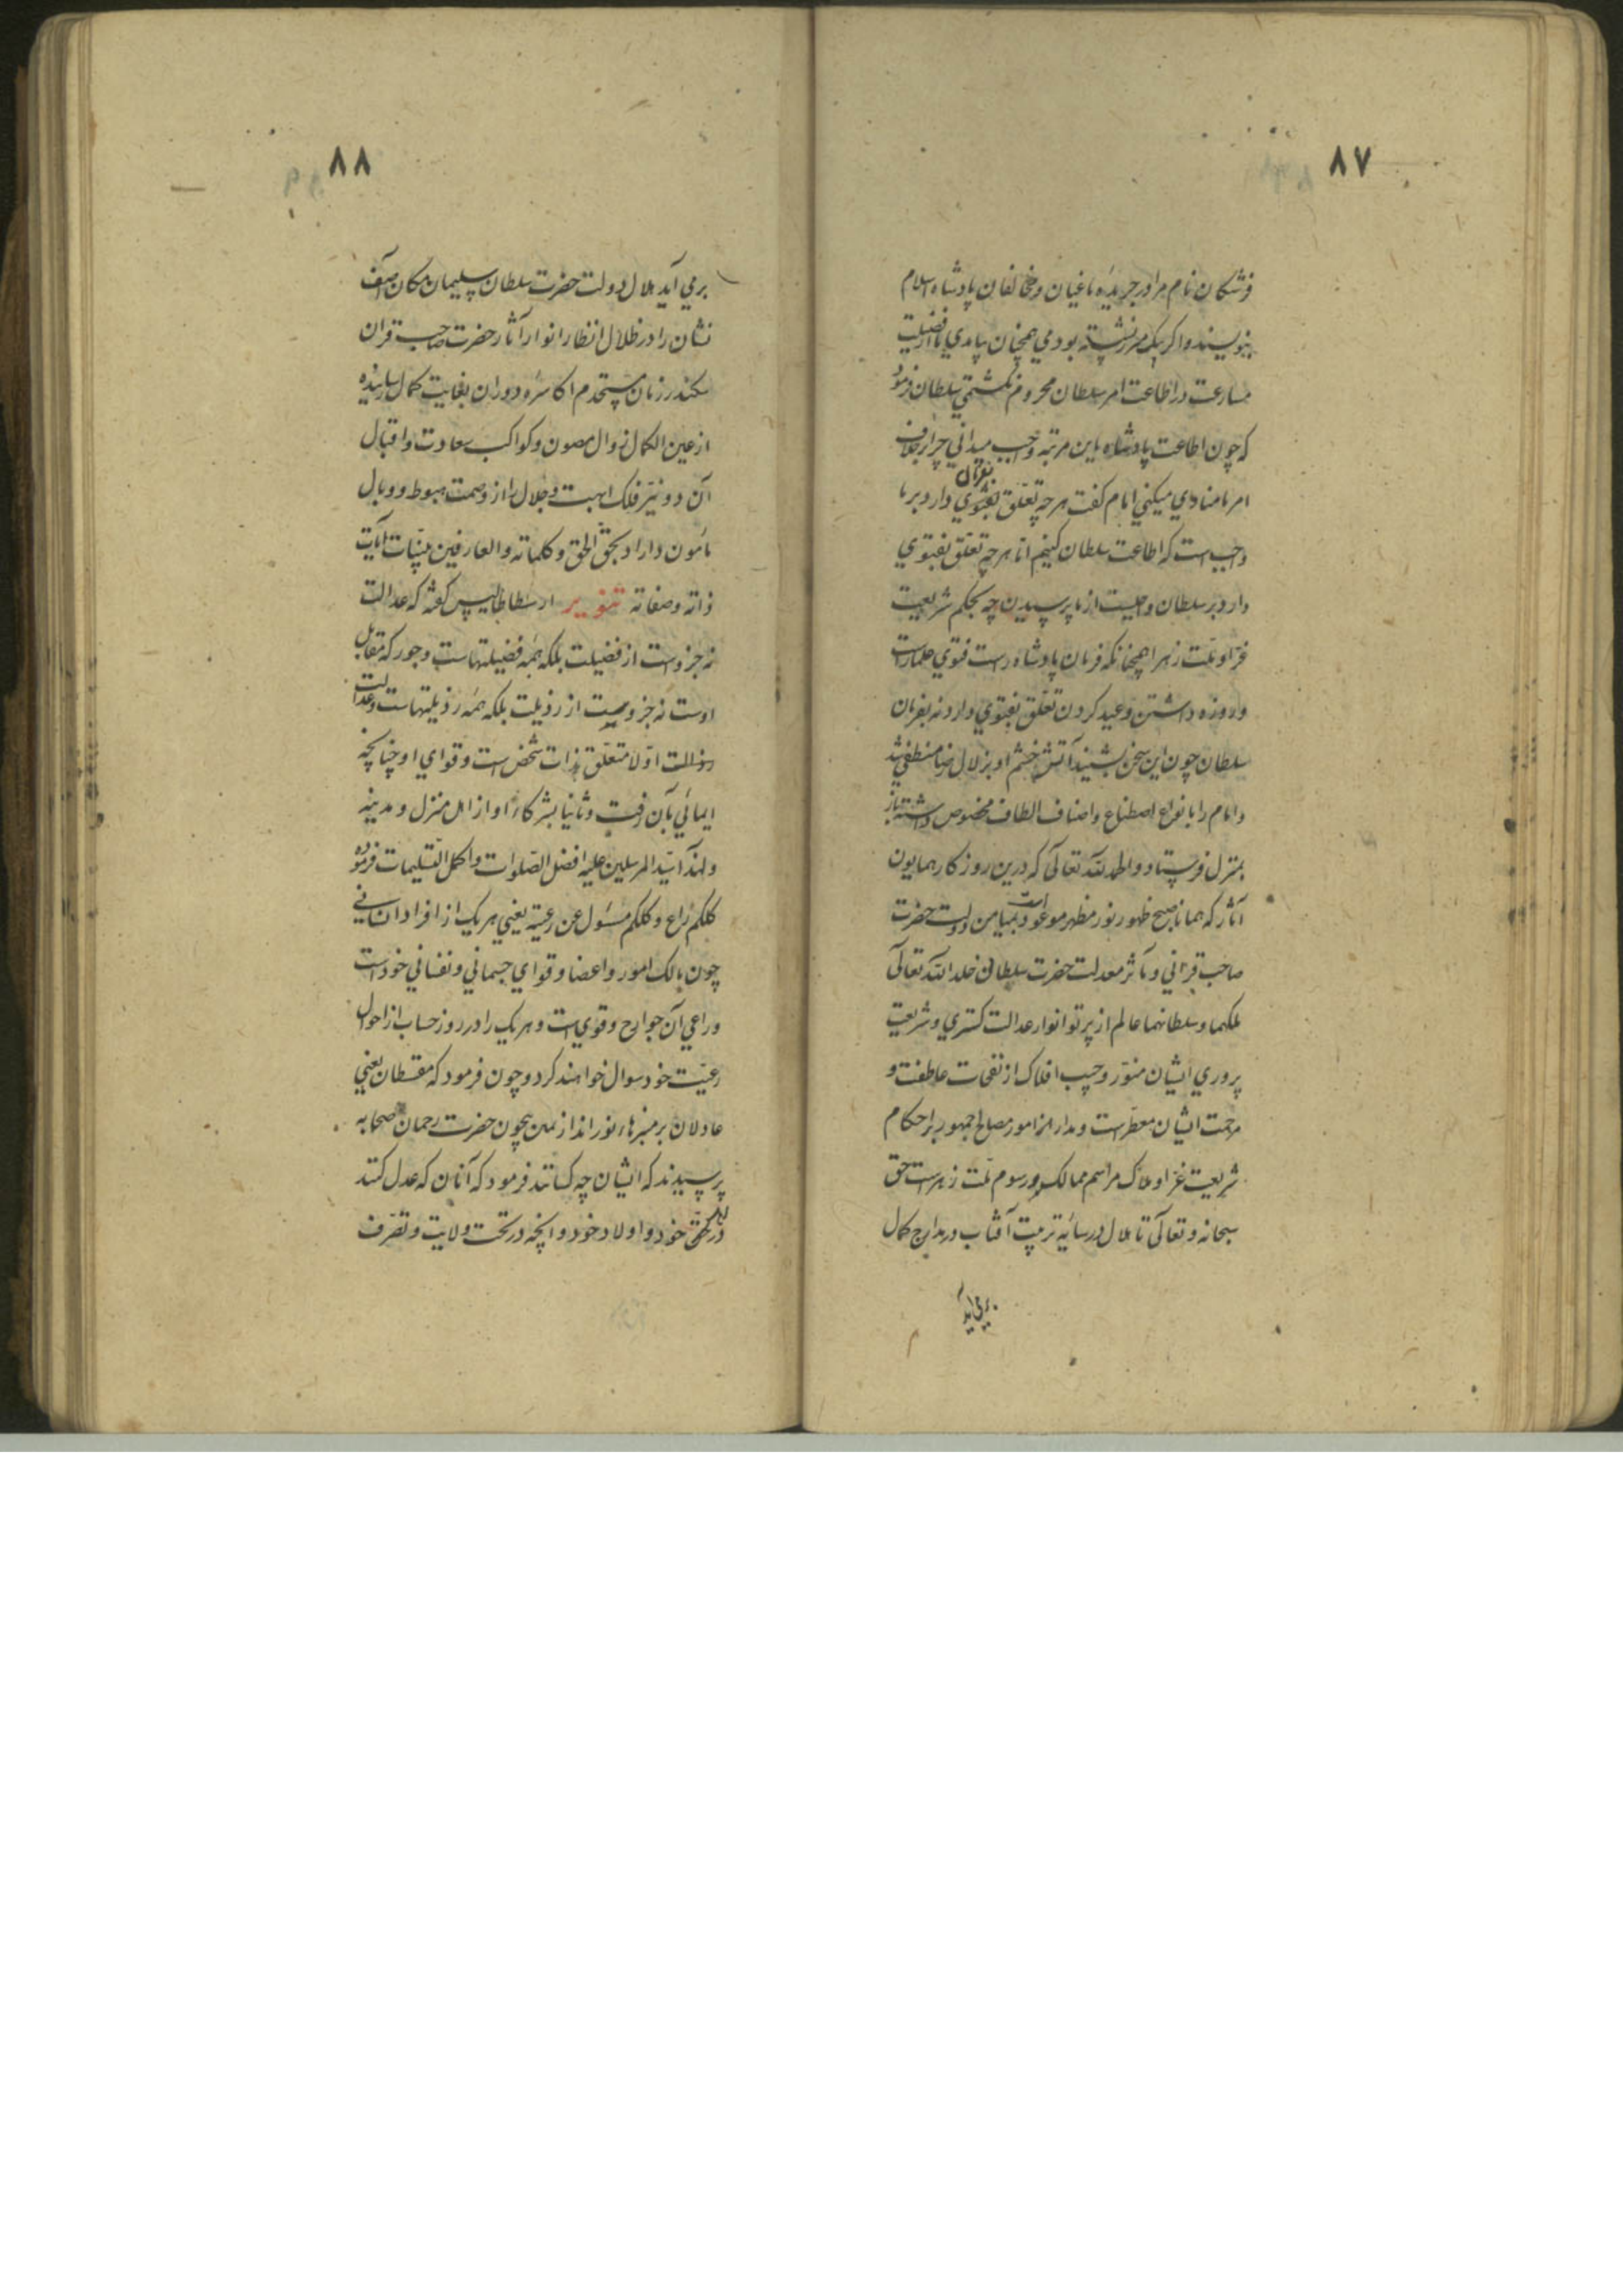 ۸۷
فرشتکان نام مرا در جریده باغیان و مخالفان پادشاه اسلام
بنویسند و اکر یک مرز نشسته بودمی همچنان پیامدی تا از فضیلت
مسارعت در اطاعت امر سلطان محروم نکشتمی سلطان فرمود
که چون اطاعت پادشاه باین مرتبه واجب میدانی چرا بر خلاف
امر ما منادی میکنی امام کفت هر چه تعلّق بفرمان دارد بر ما
واجبست که اطاعت سلطان کنیم اما هر چه تعلّق بفتوی
دارد بر سلطان واجبست از ما پرسیدن چه بحکم شریعت
غرّا و ملّت زهرا همچنانکه فرمان پادشاه راست فتوی علما راست
و روزه داشتن و عید کردن تعلّق بفتوی دارد نه بفرمان
سلطان چون این سخن بشنید آتش خشم او بزلال رضا منطفی شد
و امام را بانواع اصطناع و اصناف الطاف مخصوص داشته باز
بمنزل فرستاد و الحمد لله تعالی که درین روزکار همایون
آثار که همانا صبح ظهور نور مظهر موعود است بمیامن دولت حضرت
صاحب قرانی و مآثر معدلت حضرت سلطانی خلد الله تعالی
ملکهما و سلطانهما عالم از پرتو انوار عدالت کستری و شریعت
پروری ایشان منوّر و جیب افلاک از نفحات عاطفت و
مرحمت ایشان معطّرست و مدار امور مصالح جمهور بر احکام
شریعت غرّا و ملاک مراسم ممالک بر رسوم ملّت زهراست حق
سبحانه و تعالی تا هلال در سایه تربیت آفتاب در مدارج کمال
برمی آید
۸۸
برمی آید هلال دولت حضرت سلطان سلیمان مکان آصف
نشان را در ظلال انظار انوار آثار حضرت صاحب قران
سکندر زمان مستخدم اکاسره دوران بغایت کمال رسانیده
از عین الکمال زوال مصون و کواکب سعادت و اقبال
آن دو نیّر فلک ابهت و جلال را از وصمت هبوط و وبال
مأمون داراد بحقّ الحق و کلماته و العارفین ببیّنات آیات
ذاته و صفاته تنویر ارسطاطالیس کفته که عدالت
نه جزوست از فضیلت بلکه همه فضیلتهاست و جور که مقابل
اوست نه جزویست از رذیلت بلکه همه رذیلتهاست و عدالت
اولا متعلّق بذات شخص است و قوای او چنانچه
ایمائی بآن رفت و ثانیا بشرکاء او از اهل منزل و مدینه
و لهذا سیّد المرسلین علیه افضل الصّلوات و اکمل التّسلیمات فرمود
کلکم راع و کلکم مسؤل عن رعیته یعنی هر یک از افراد انسانی
چون مالک امور و اعضا و قوای جسمانی و نفسانی خودست
و راعی آن جوارح و قوی است و هر یک را در روز حساب از احوال
رعیّت خود سوال خواهند کرد و چون فرمود که مقسطان یعنی
عادلان بر منبرهاء نور اند از یمین بیچون حضرت رحمان صحابه
پرسیدند که ایشان چه کسانند فرمود که آنان که عدل کنند
در حق خود و اولاد خود و آنچه در تحت ولایت و تصرّف